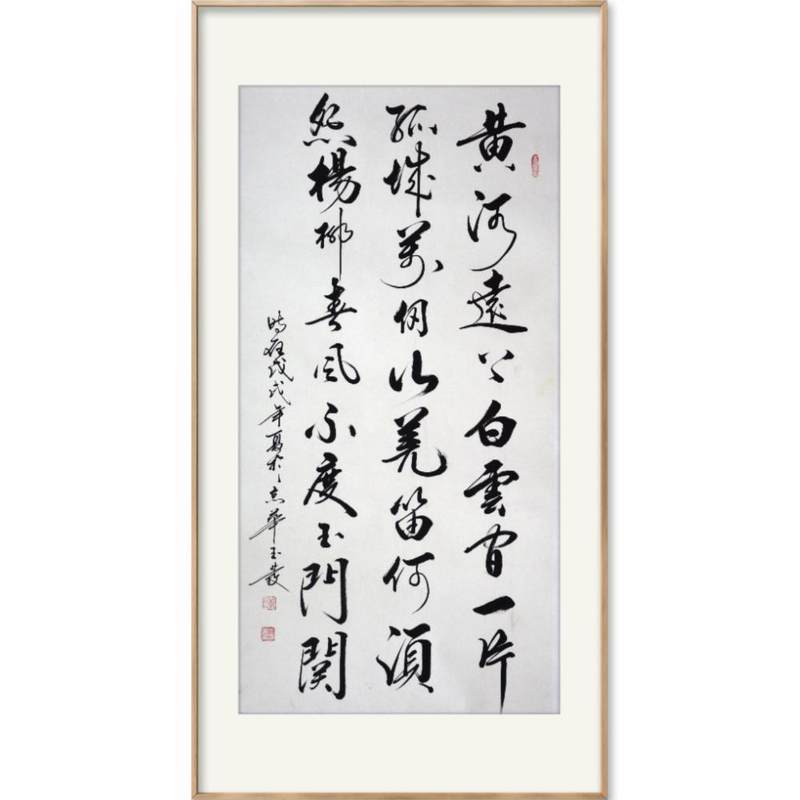 黄河遠上白雲間一片
孤城萬仞山羌笛何須
怨楊柳春風不度玉門関
時在戊戌年夏於京華玉發